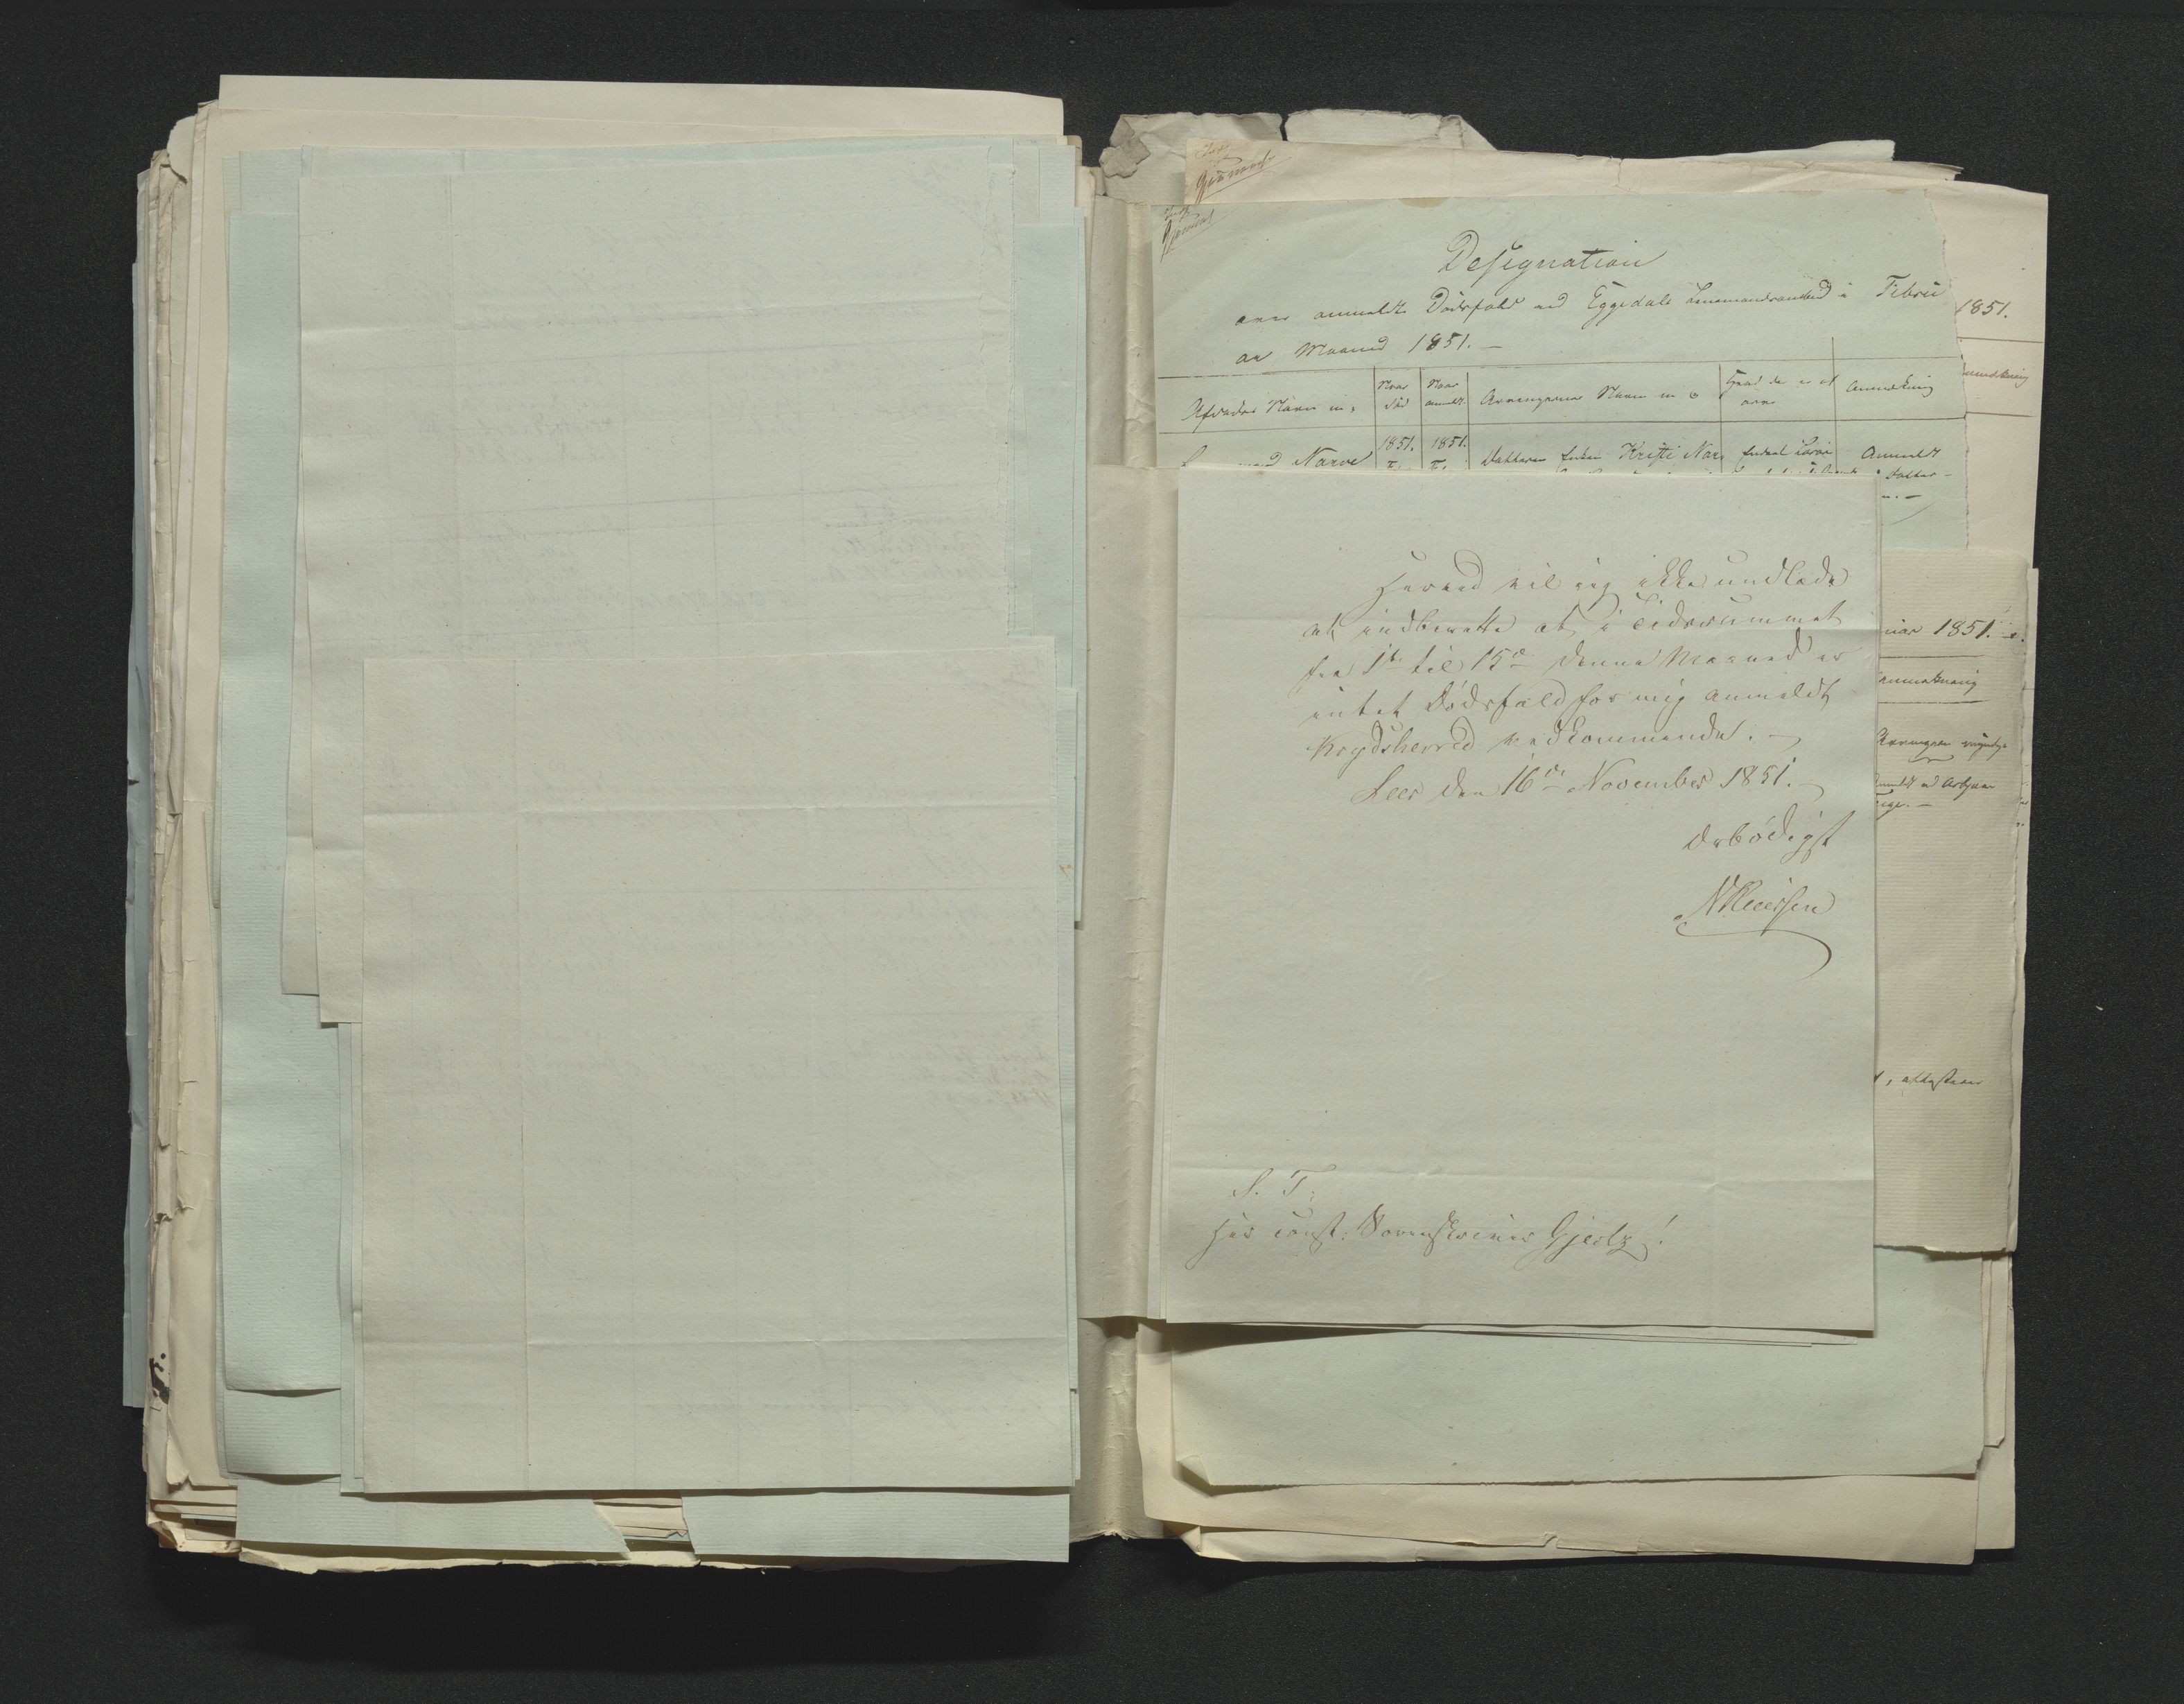 Designation
over anmeldte Dødsfald ved Eggedals Lensmandsombud i Febru
ar Maaned 1851. —
Afdødes Navn m.
Naar død
Naar anmeldt.
Arvingernes Navn m v
Hvad de er at arve
Anmærkning
Narve
1851.
1851.
Datteren Enken Kristi Nar
Anmeldt
1851.
uar 1851.
Anmærkning
Arvingen myndig
attesterer
Herved vil jeg ikke undlade
at indberette at i Tidsrummet
fra 1te til 15de denne Maaned er
intet Dødsfald for mig anmeldt
Krydsherred vedkommende. —
Leer den 16de November 1851. —
Ærbødigst
S. T.
Hr const: Sorenskriver Gjertz!